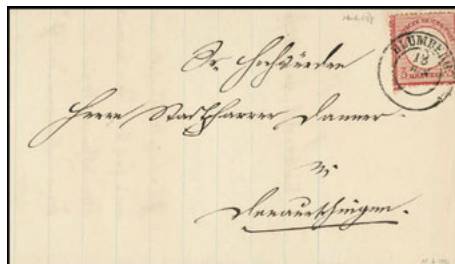 BLUMBERG
18
Sr. Hochwürden
Herrn Stadtpfarrer Danner.
in
Donaueschingen.